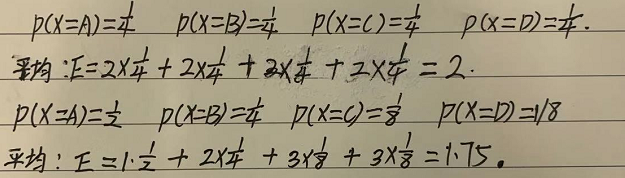 P(X=A)=1/4 P(X=B)=1/4 P(X=C)=1/4 P(X=D)=1/4.
平均:E=2×1/4+2×1/4+2×1/4+2×1/4=2.
P(X=A)=1/2 P(X=B)=1/4 P(X=C)=1/8 P(X=D)=1/8
平均:E=1·1/2+2×1/4+3×1/8+3×1/8=1.75.